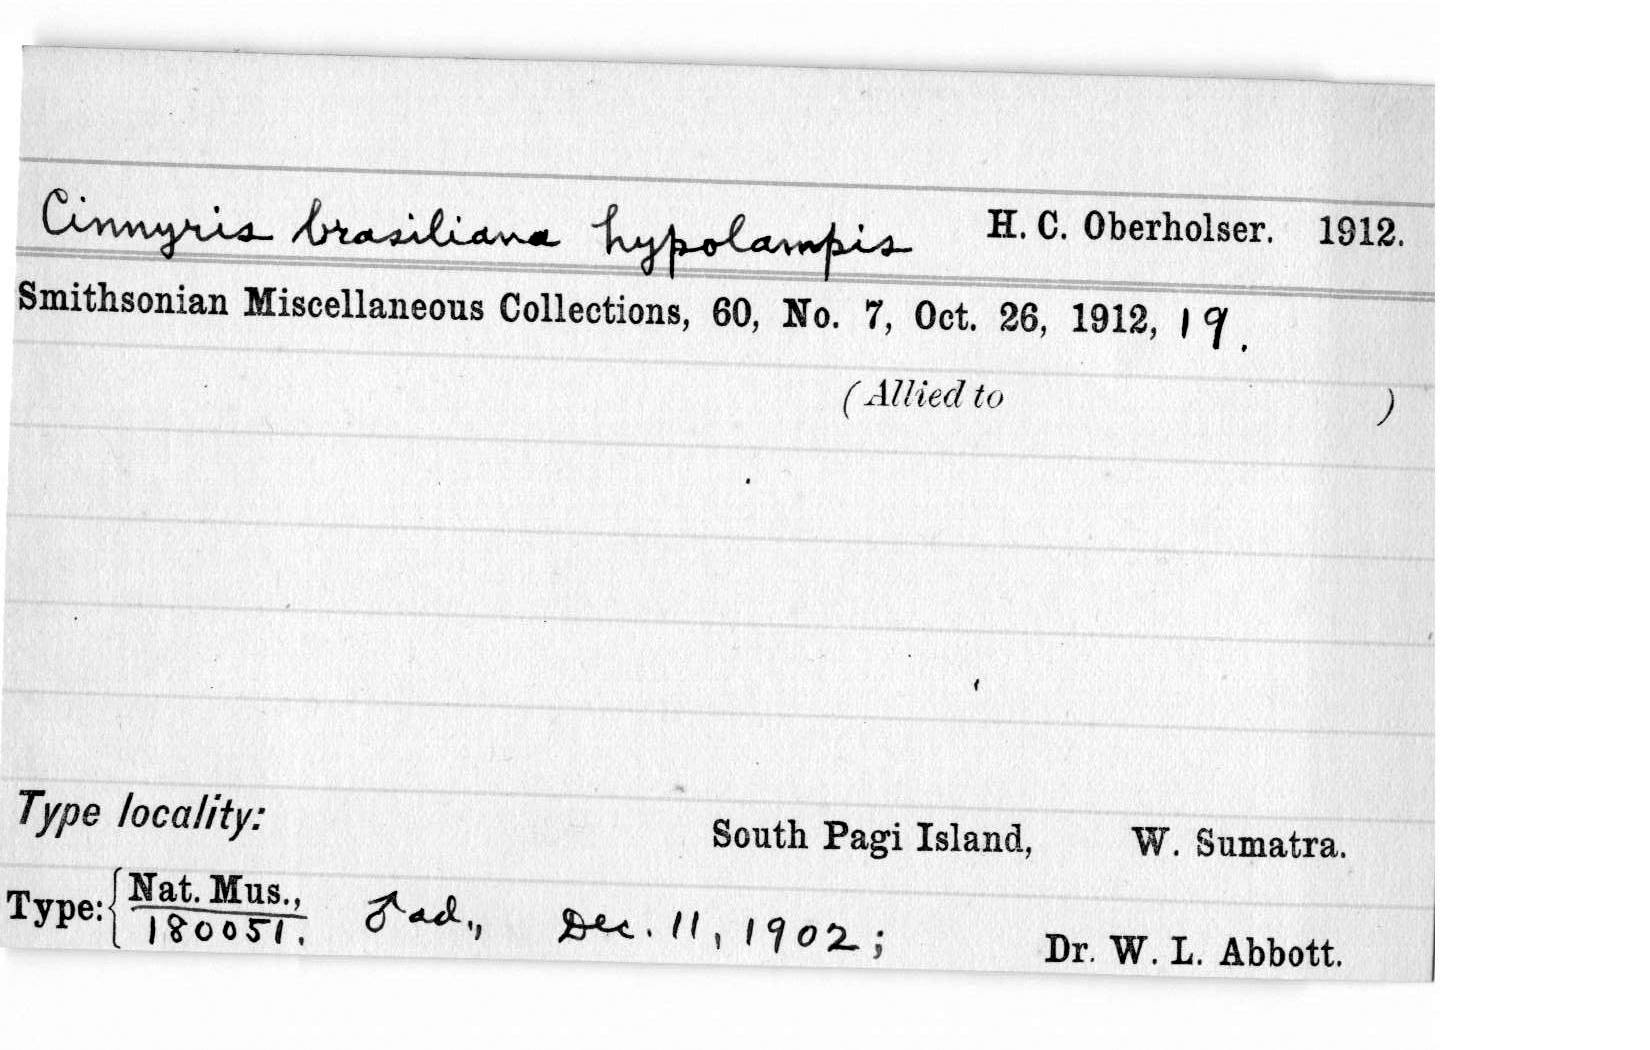 Cinnyris brasiliana hypolampis H. C. Oberholser. 1912.
Smithsonian Miscellaneous Collections, 60, No. 7, Oct. 26, 1912, 19.
(Allied to )
Type locality: South Pagi Island, W. Sumatra.
Type: { Nat. Mus., 180051. ♂ ad., Dec. 11, 1902; Dr. W. L. Abbott.